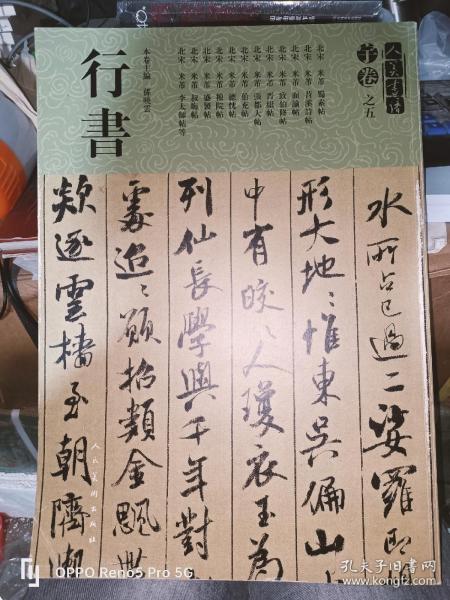 人美書譜
子卷 之五
北宋 米芾 蜀素帖
北宋 米芾 苕溪詩帖
北宋 米芾 面諭帖
北宋 米芾 致伯修帖
北宋 米芾
北宋 米芾 張都大帖
北宋 米芾 伯充帖
北宋 米芾 德忱帖
北宋 米芾
北宋 米芾 盛製帖
北宋 米芾 叔晦帖
北宋 米芾 李太師帖等
本卷主編 孫曉雲
行書
水所占已過二娑羅即
形大地〻惟東吳偏山
中有皎〻人瓊衣玉為
列仙長學與千年對
處迨〻願招類金飄
欻逐雲檣至朝隮
人民美術出版社
OPPO Reno5 Pro 5G
孔夫子旧书网